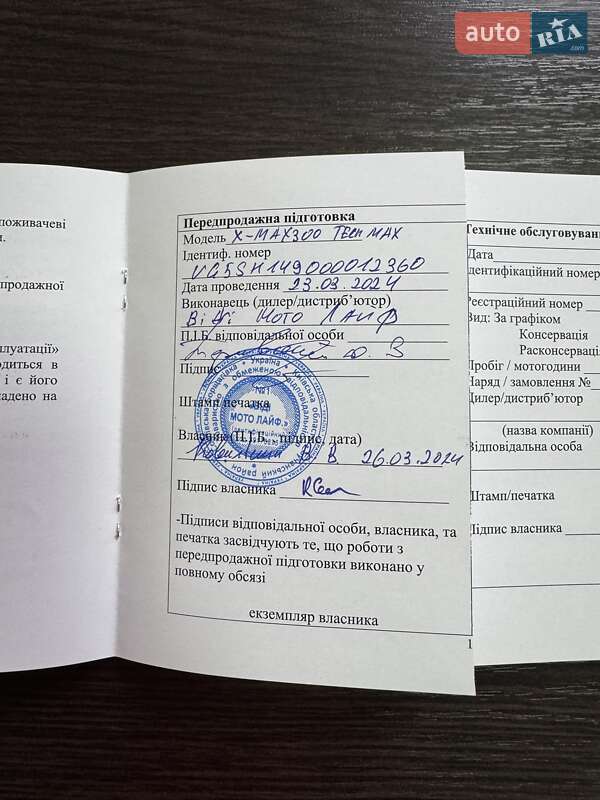 auto RIA .com
поживачеві
продажної
плуатації»
одиться в
і є його
ладено на
Передпродажна підготовка
Модель X-MAX300 TECH MAX
Ідентиф. номер
VG5SH149000012360
Дата проведення 23.03.2024
Виконавець (дилер/дистриб’ютор)
Віді Мото Лайф
П.І.Б. відповідальної особи
Підпис
Україна
№1
«ВІДІ
МОТО ЛАЙФ»
Штамп/печатка
Власник (П.І.Б., підпис, дата)
В. В. 26.03.2024
Підпис власника
-Підписи відповідальної особи, власника, та
печатка засвідчують те, що роботи з
передпродажної підготовки виконано у
повному обсязі
екземпляр власника
1
Технічне обслуговуван
Дата
Ідентифікаційний номер
Реєстраційний номер
Вид: За графіком
Консервація
Расконсерваці
Пробіг / мотогодини
Наряд / замовлення №
Дилер/дистриб’ютор
(назва компанії)
Відповідальна особа
Штамп/печатка
Підпис власника